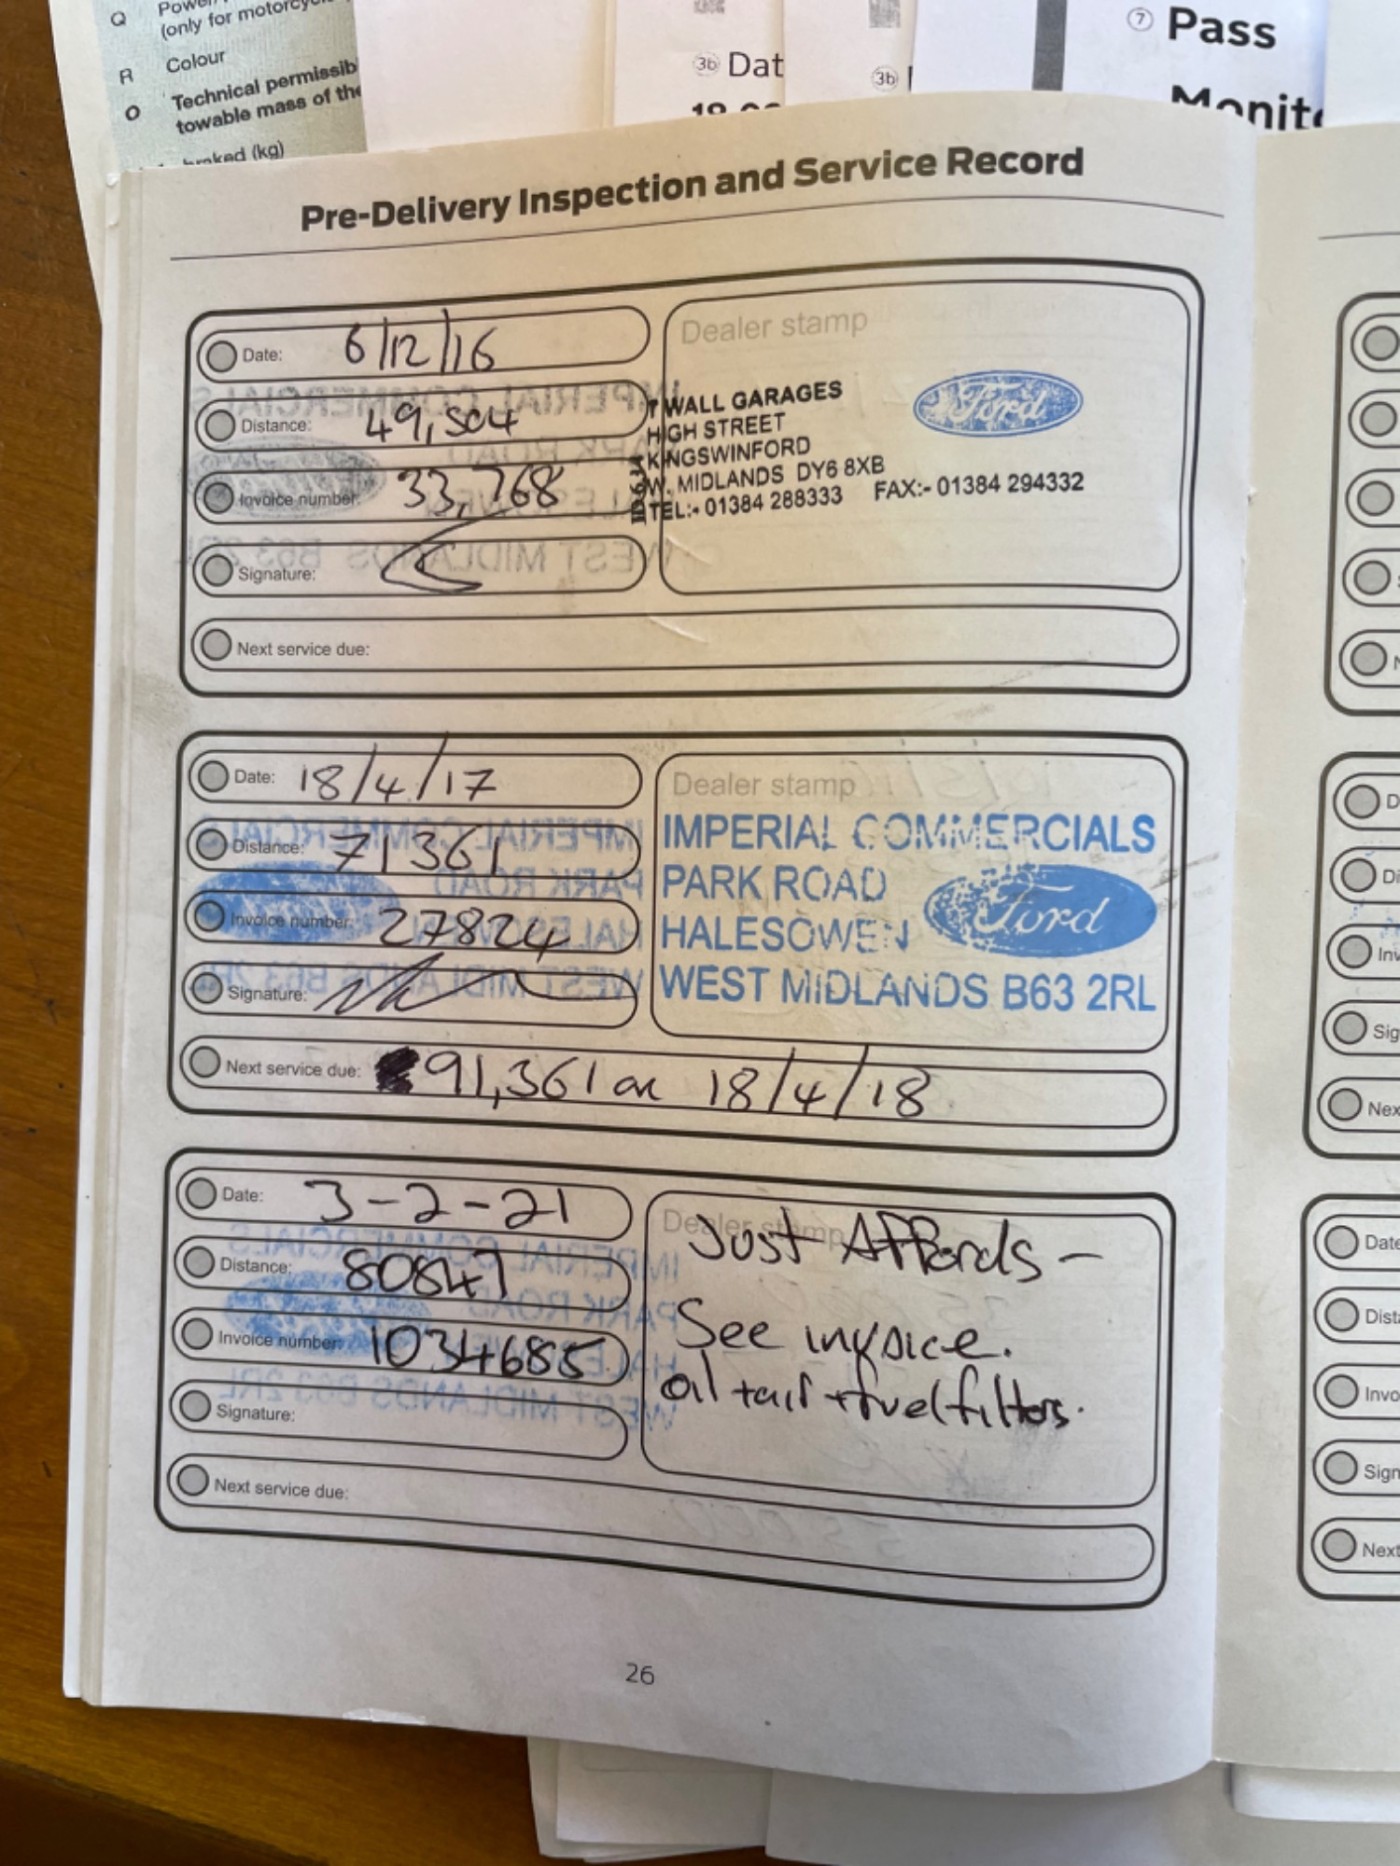 Q Power
(only for motorcycle
R Colour
O Technical permissib
towable mass of the
braked (kg)
3b Dat
3b
7 Pass
Monit
Pre-Delivery Inspection and Service Record
Date: 6/12/16
Distance: 49,504
Invoice number: 33,768
Signature:
Next service due:
Dealer stamp
WALL GARAGES
HIGH STREET
KINGSWINFORD
W. MIDLANDS DY6 8XB
TEL:- 01384 288333 FAX:- 01384 294332
Ford
Date: 18/4/17
Distance: 71361
Invoice number: 27824
Signature:
Next service due: 91,361 or 18/4/18
Dealer stamp
IMPERIAL COMMERCIALS
PARK ROAD
HALESOWEN
WEST MIDLANDS B63 2RL
Ford
Date: 3-2-21
Distance: 80847
Invoice number: 1034685
Signature:
Next service due:
Dealer stamp
Just Affords -
See invoice.
oil + air + fuel filters.
26
D
Di
Inv
Sig
Nex
Date
Dist
Invo
Sign
Next